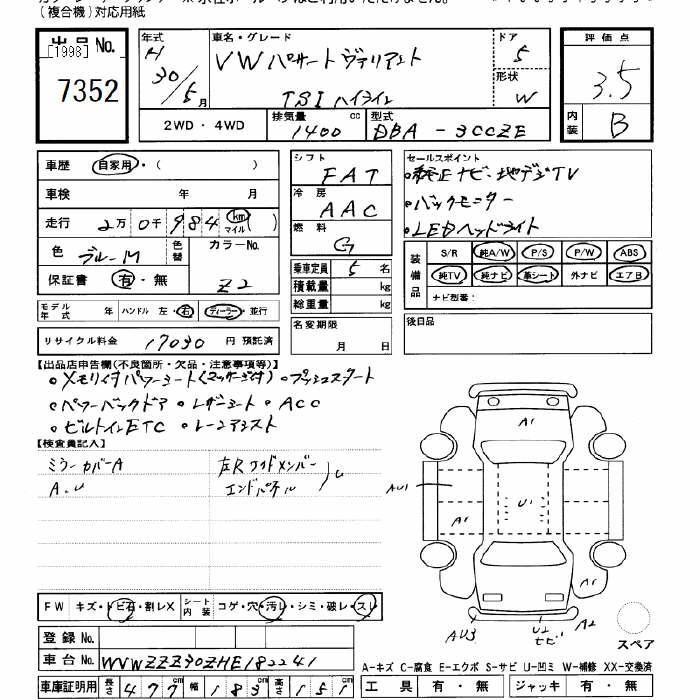 (複合機)対応用紙
出品 No.
[1998]
7352
年式
H30/5月
車名・グレード
VW パサート ヴァリアント
TSI ハイライン
ドア
5
形状
W
2WD・4WD
排気量 1400 cc
型式 DBA-3CCZE
評価点
3.5
内装
B
車歴 自家用・( )
車検 年 月
走行 2万0千984 km マイル ( )
色 ブルーM 色替 カラーNo.
保証書 有・無 Z2
モデル年式 年 ハンドル 左・右 ディーラー・並行
リサイクル料金 17030 円 預託済
シフト FAT
冷房 AAC
燃料 G
乗車定員 5 名
積載量 kg
総重量 kg
名変期限
月 日
セールスポイント
・純正ナビ・地デジTV
・バックモニター
・LEDヘッドライト
装備品
S/R 純A/W P/S P/W ABS
純TV 純ナビ 革シート 外ナビ エアB
ナビ型番:
後日品
【出品店申告欄(不良箇所・欠品・注意事項等)】
・メモリ付パワーシート(マッサージ付) ・プッシュスタート
・パワーバックドア ・レザーシート ・ACC
・ビルトインETC ・レーンアシスト
【検査員記入】
ミラーカバーA
A.U
左Rサイドメンバー
エンドパネル
U
A1
AU1
A1
U1
A1
AU3
U2
セビ
スペア
FW キズ・トビ石・割レX シート内装 コゲ・穴・汚レ・シミ・破レ・スレ
登録 No.
車台 No. WVWZZZ3CZHE182241
車庫証明用 長さ 477 幅 183 高さ 151
A-キズ C-腐食 E-エクボ S-サビ U-凹ミ W-補修 XX-交換済
工具 有・無 ジャッキ 有・無